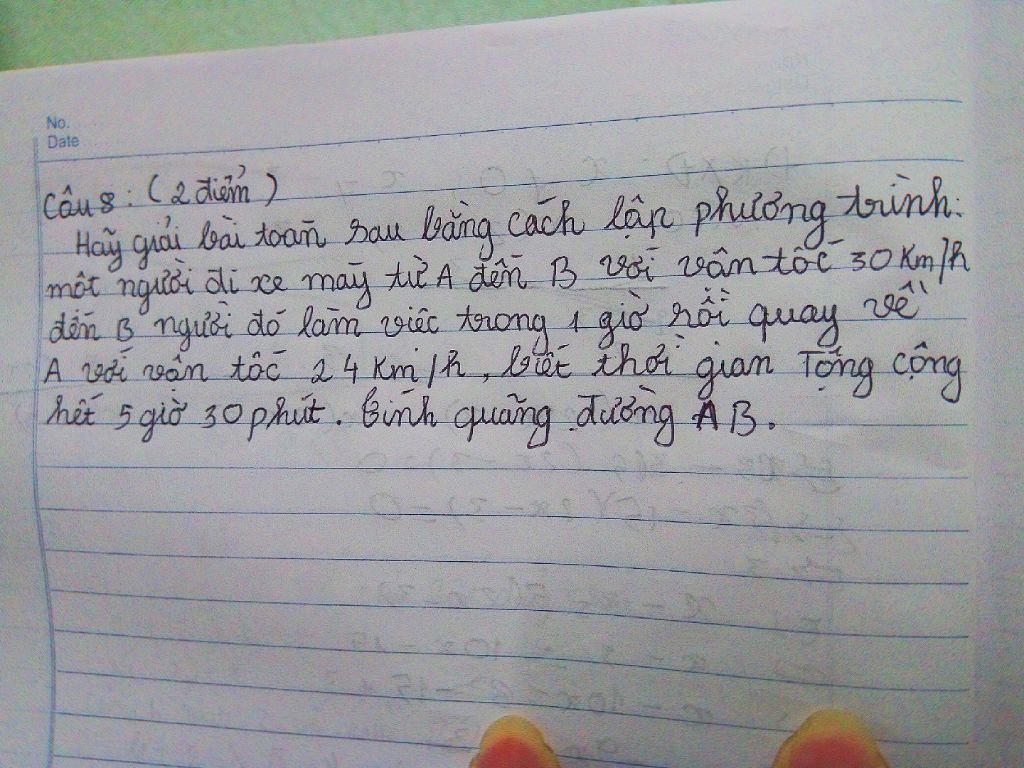 No.
Date
Câu 8: (2 điểm)
Hãy giải bài toán sau bằng cách lập phương trình:
một người đi xe máy từ A đến B với vân tốc 30 Km/h
đến B người đó làm viêc trong 1 giờ rồi quay về
A với vân tốc 24 Km/h, biết thời gian Tổng cộng
hết 5 giờ 30 phút. tính quãng đường AB.